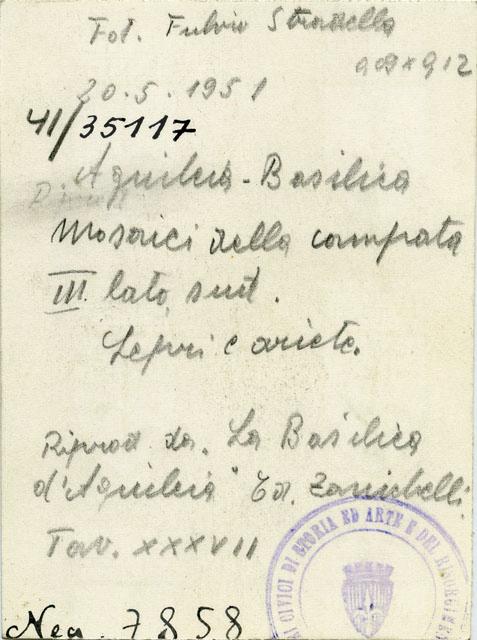 Fot. Fulvio Stradella
9.09 x 9,12
20.5.1951
41/35117
Aquileia - Basilica
Mosaici della campata
III. lato sud.
Lepri e ariete.
Riprod da. La Basilica
d'Aquileia" Ed. Zanichelli.
Tav. XXXVII
Neg. 7858
I CIVICI DI STORIA ED ARTE E DEL RISORGIMEN